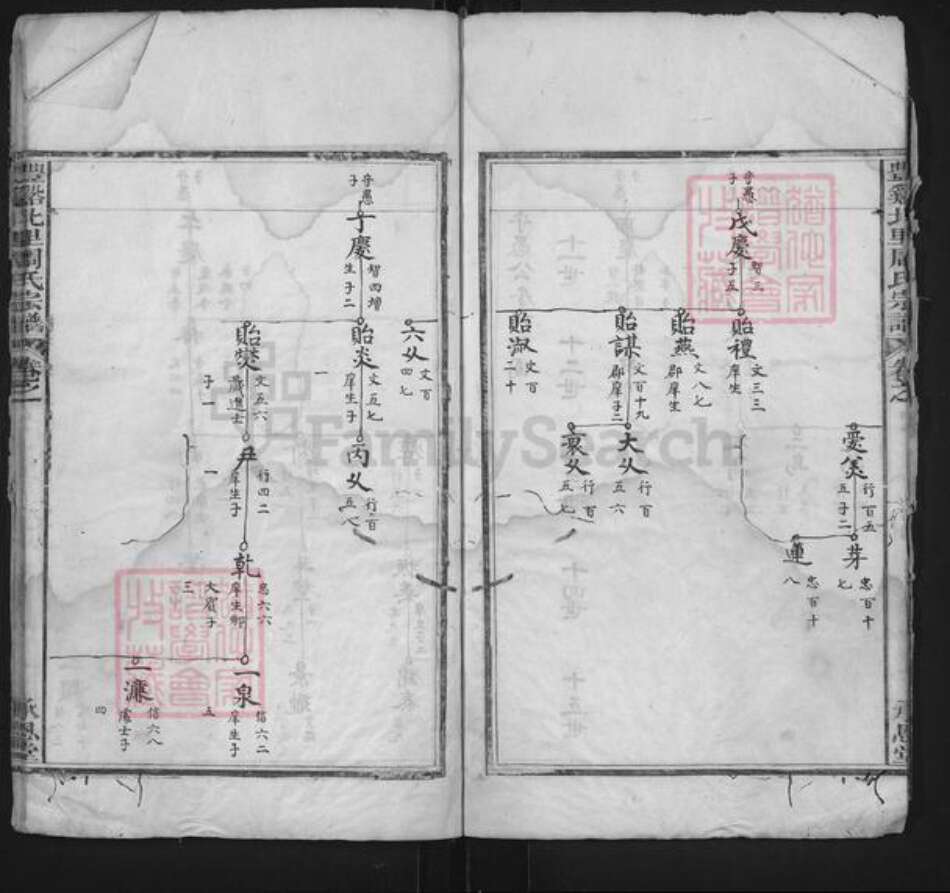 豐谿北里周氏宗譜
卷之
承恩堂
守愚子
戊慶
智三
子五
貽禮
文三三
庠生
貽燕
文八七
郡庠生
貽謀
文百十九
郡庠子二
貽淑
文百二十
大乆
行百五六
裒乆
行百五七
愛
行百五五
子二
芽
忠百十七
連
忠百十八
守愚子
于慶
智四增
生子二
六乆
文百四七
貽炎
文五七
庠生子一
貽燮
文五六
歲進士
子一
丙乆
行百五八
行四二
庠生子一
乾
忠六六
庠生鄉
大賓子三
一泉
信六二
庠生子五
一濂
信六八
儒士子四
豐谿北里周氏宗譜
卷之
承恩堂
FamilySearch